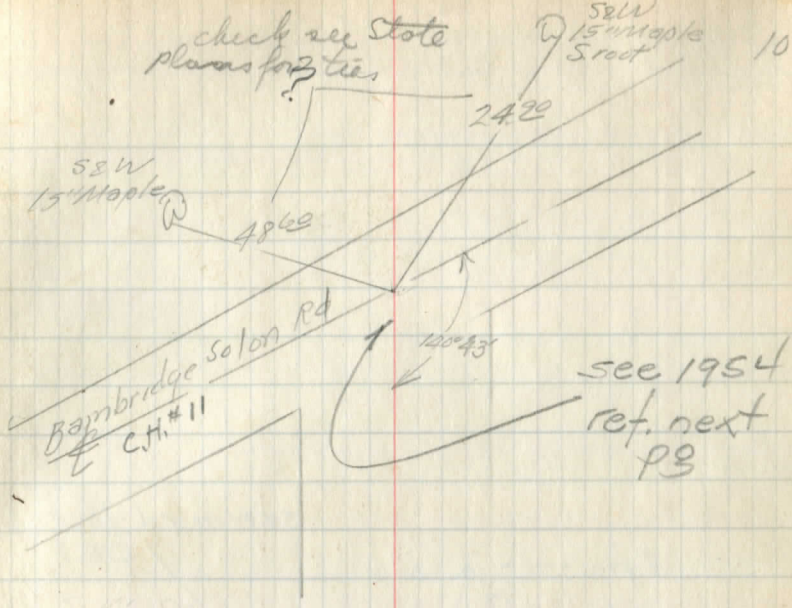 check see State
plans for ? ties
S&W
15" Maple
S. root
10
24.20
S&W
15" Maple
48.60
Bambridge Solon Rd
C.H. #11
140°43'
see 1954
ref. next
pg